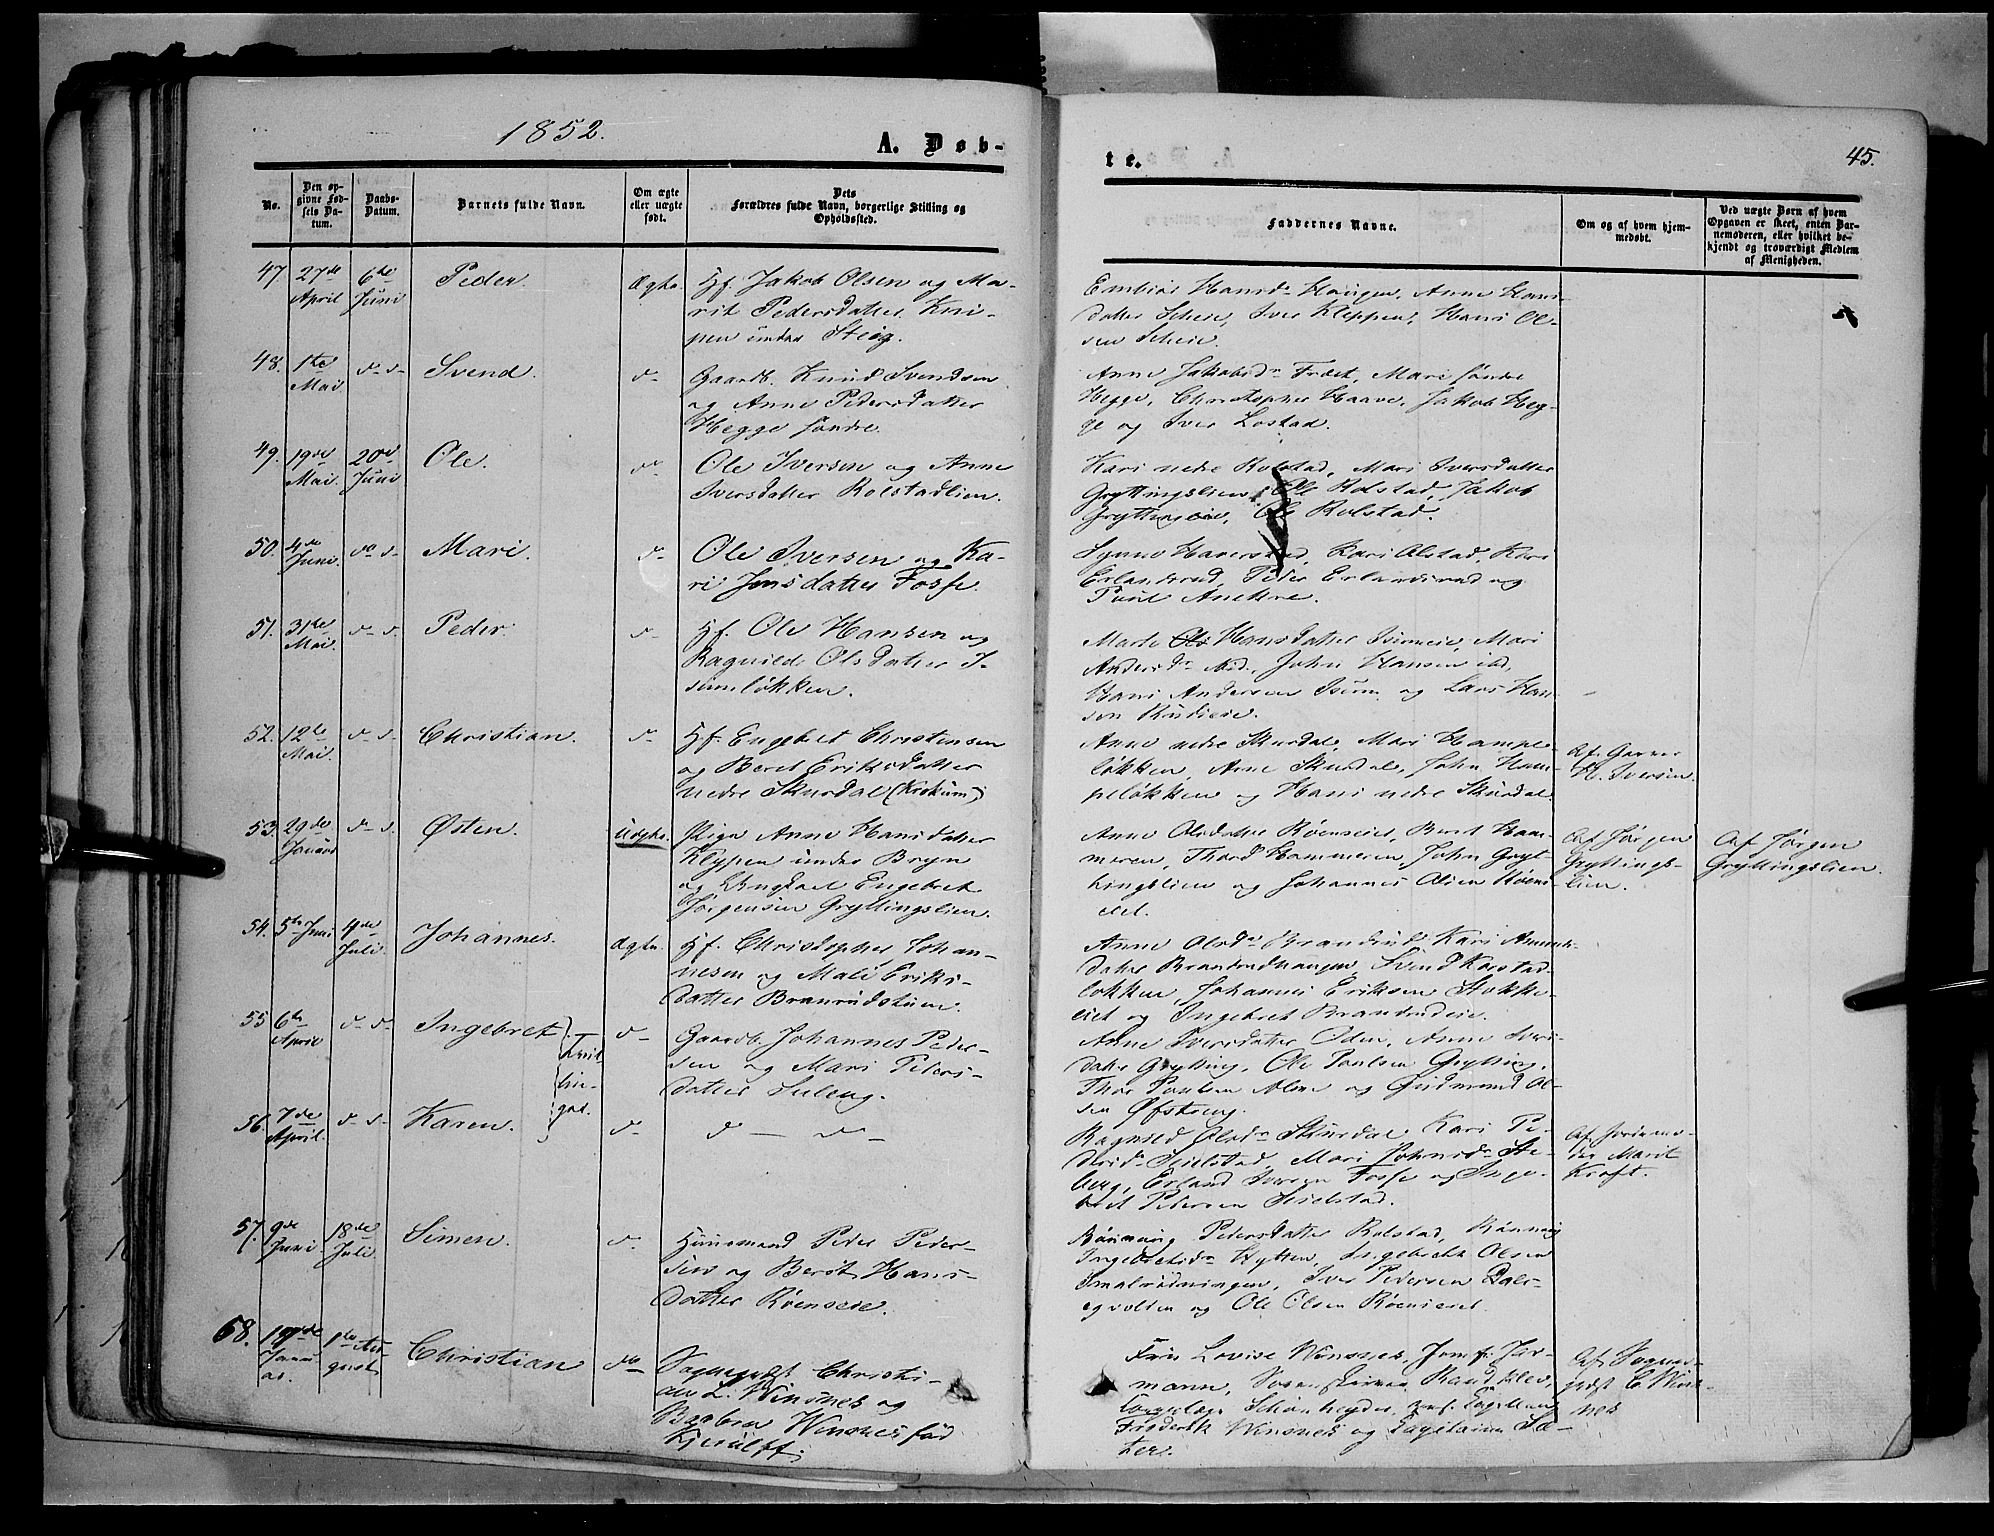 1852.
A. Døb-
te.
45.
No.
Den op-
givne Fød-
sels Da-
tum.
Daabs-
Datum.
Barnets fulde Navn.
Om ægte
eller uægte
født.
Dets
Forældres fulde Navn, borgerlige Stilling og
Opholdssted.
Faddernes Navne.
Om og af hvem hjem-
medøbt.
Ved uægte Børn af hvem
Opgaven er skeet, enten Bar-
nemoderen, eller hvilket be-
kjendt og troværdigt Medlem
af Menigheden.
47 27de April 6te Juni Peder Ægte.
Hf. Jakob Olsen og Ma-
rit Pedersdatter Kni-
pen under Steig.
Hansdr Haugen, Anne Hans-
datter Scheie, Iver Kleppen, Hans Ol-
sen Scheie.
48. 1te Mai d- d- Svend. d-
Gaardb. Knud Svendsen
og Anne Pedersdatter
Hegge søndre.
Anne Jakobsdr Fræt, Mari søndre
Hegge, Christopher Haave, Jakob Heg-
ge og Iver Lostad.
49. 19de Mai 20de Juni Ole. do
Ole Iversen og Anne
Iversdatter Rolstadlien.
Kari nedre Rolstad, Mari Iversdatter
Gryttingslien, Ole Rolstad, Jakob
Gryttingslien, Ole Rolstad.
50. 4de Juni do d- Mari. d-
Ole Iversen og Ka-
ri Jensdatter Fosse.
Synne Haverstad, Kari Alstad, Kari
Erlandsrud, Peder Erlandsrud og
Poul
51. 31te Mai d- d. Peder. d-
Hf. Ole Hansen og
Ragnild Olsdatter I-
sumløkken.
Marte Hansdatter Isumeie, Mari
Andersdr ibid., John Hansen ibd,
Hans Andersen Isum og Lars Han-
sen Rudieie.
52. 12te Mai d- d- Christian. d-
Hf. Engebret Christensen
og Beret Eriksdatter
nedre Skurdal (Krokum)
Anne nedre Skurdal, Mari Hample-
løkken, Arne Skurdal, John Ham-
peløkken og Hans nedre Skurdal.
Af
H. Iversen.
53. 29de Januar d- d. Østen. Uægte.
Pige Anne Hansdatter
Klypen under Bryn
og Ungkarl Engebret
Jørgensen Gryttingslien.
Anne Olsdatter Røenseiet, Beret Ham-
meren, Thord Hammeren, John Gryt-
tingslien og Johannes Olsen Røens-
eiet.
Af Jørgen
Gryttings-
lien.
Af Jørgen
Gryttingslien.
54. 5te Juni 4de Juli. Johannes. Ægte.
Hf. Christopher Johan-
nesen og Mali Eriks-
datter Branrudstuen.
Anne Olsdr Brandrud, Kari
datter Brandrudhaugen, Svend Kolstad-
løkken, Johannes Eriksen Stokke-
eiet og Ingebret Brandrudeie.
55 6te April d- d- Ingebret d-
Tvil-
lin-
ger.
Gaardb. Johannes Peder-
sen og Mari Peders-
datter Suleng.
Anne Iversdatter Oden, Anne Ivers-
datter Grytting, Ole Paulsen Grytting,
Thor Paulsen Alme og Gudmund Ol-
sen Øfsteng.
56. 7de April. d- d- Karen. d-
d- - do -
Ragnild Olsdr Skurdal, Kari Pe-
dersdr Seielstad, Mari Johnsdr Ste-
berg, Erland Iversen Fosse og Inge-
bret Pedersen Seielstad.
Af Jordemo-
der Marit
Kroft.
57. 9de Juni 18de Juli. Simen. d.
Huusmand Peder Peder-
sen og Berit Hans-
datter Røenseie.
Rønnaug Pedersdatter Rolstad, Rønnaug
Ingebretsdr Hytten, Ingebrekt Olsen
Smalrudningen, Iver Pedersen Dals-
egvolden og Ole Olsen Røenseiet.
58. 1te Au-
gust Christian do
Sognepræst Christi-
an L. Winsnes og
Barbra Winsnes fød
Kjerulff.
Frue Lovise Winsnes, Jomf. Jør-
mann, Randklev,
Schönheyder,
Frederik Winsnes og Capitain Sæ-
ter.
Af Sogne-
præst C. Wins-
nes